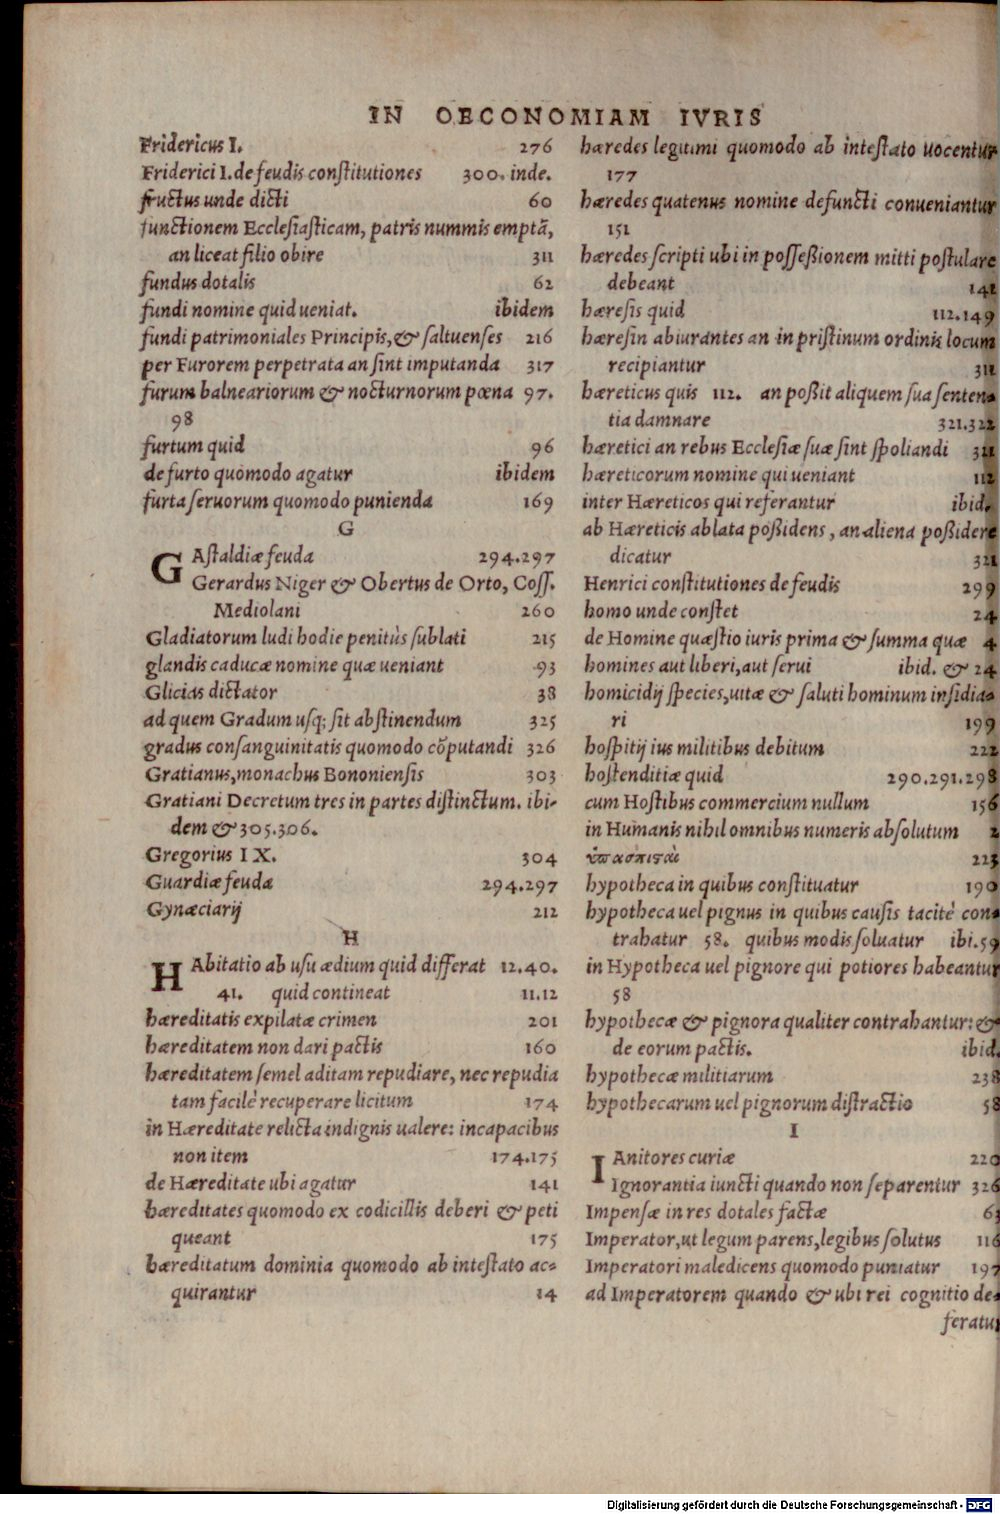 IN OECONOMIAM IVRIS
Fridericus I. 276
Friderici I. de feudis constitutiones 300. inde.
fructus unde dicti 60
functionem Ecclesiasticam, patris nummis emptã,
an liceat filio obire 311
fundus dotalis 62
fundi nomine quid ueniat. ibidem
fundi patrimoniales Principis, & saltuenses 216
per Furorem perpetrata an sint imputanda 317
furum balneariorum & nocturnorum pœna 97.
98
furtum quid 96
de furto quomodo agatur ibidem
furta seruorum quomodo punienda 169
G
GAstaldiæ feuda 294.297
Gerardus Niger & Obertus de Orto, Coss.
Mediolani 260
Gladiatorum ludi hodie penitùs sublati 215
glandis caducæ nomine quæ ueniant 93
Glicias dictator 38
ad quem Gradum usq; sit abstinendum 325
gradus consanguinitatis quomodo cõputandi 326
Gratianus, monachus Bononiensis 303
Gratiani Decretum tres in partes distinctum. ibi-
dem & 305.306.
Gregorius IX. 304
Guardiæ feuda 294.297
Gynæciarij 212
H
HAbitatio ab usu ædium quid differat 12.40.
41. quid contineat 11.12
hæreditatis expilatæ crimen 201
hæreditatem non dari pactis 160
hæreditatem semel aditam repudiare, nec repudia
tam facilè recuperare licitum 174
in Hæreditate relicta indignis ualere: incapacibus
non item 174.175
de Hæreditate ubi agatur 141
hæreditates quomodo ex codicillis deberi & peti
queant 175
hæreditatum dominia quomodo ab intestato ac-
quirantur 14
hæredes legitimi quomodo ab intestato uocentur
177
hæredes quatenus nomine defuncti conueniantur
151
hæredes scripti ubi in possessionem mitti postulare
debeant 141
hæresis quid 112.149
hæresin abiurantes an in pristinum ordinis locum
recipiantur 311
hæreticus quis 112. an possit aliquem sua senten-
tia damnare 321.322
hæretici an rebus Ecclesiæ suæ sint spoliandi 311
hæreticorum nomine qui ueniant 112
inter Hæreticos qui referantur ibid.
ab Hæreticis ablata possidens, an aliena possidere
dicatur 321
Henrici constitutiones de feudis 299
homo unde constet 24
de Homine quæstio iuris prima & summa quæ 4
homines aut liberi, aut serui ibid. & 24
homicidij species, uitæ & saluti hominum insidia-
ri 199
hospitij ius militibus debitum 222
hostenditiæ quid 290.291.298
cum Hostibus commercium nullum 156
in Humanis nihil omnibus numeris absolutum 2
ὑπασπισταὶ 223
hypotheca in quibus constituatur 190
hypotheca uel pignus in quibus causis tacitè con-
trahatur 58. quibus modis soluatur ibi.59
in Hypotheca uel pignore qui potiores habeantur
58
hypothecæ & pignora qualiter contrahantur: &
de eorum pactis. ibid.
hypothecæ militiarum 238
hypothecarum uel pignorum distractio 58
I
IAnitores curiæ 220
Ignorantia iuncti quando non separentur 326
Impensæ in res dotales factæ 63
Imperator, ut legum parens, legibus solutus 116
Imperatori maledicens quomodo puniatur 197
ad Imperatorem quando & ubi rei cognitio de-
feratur
Digitalisierung gefördert durch die Deutsche Forschungsgemeinschaft - DFG